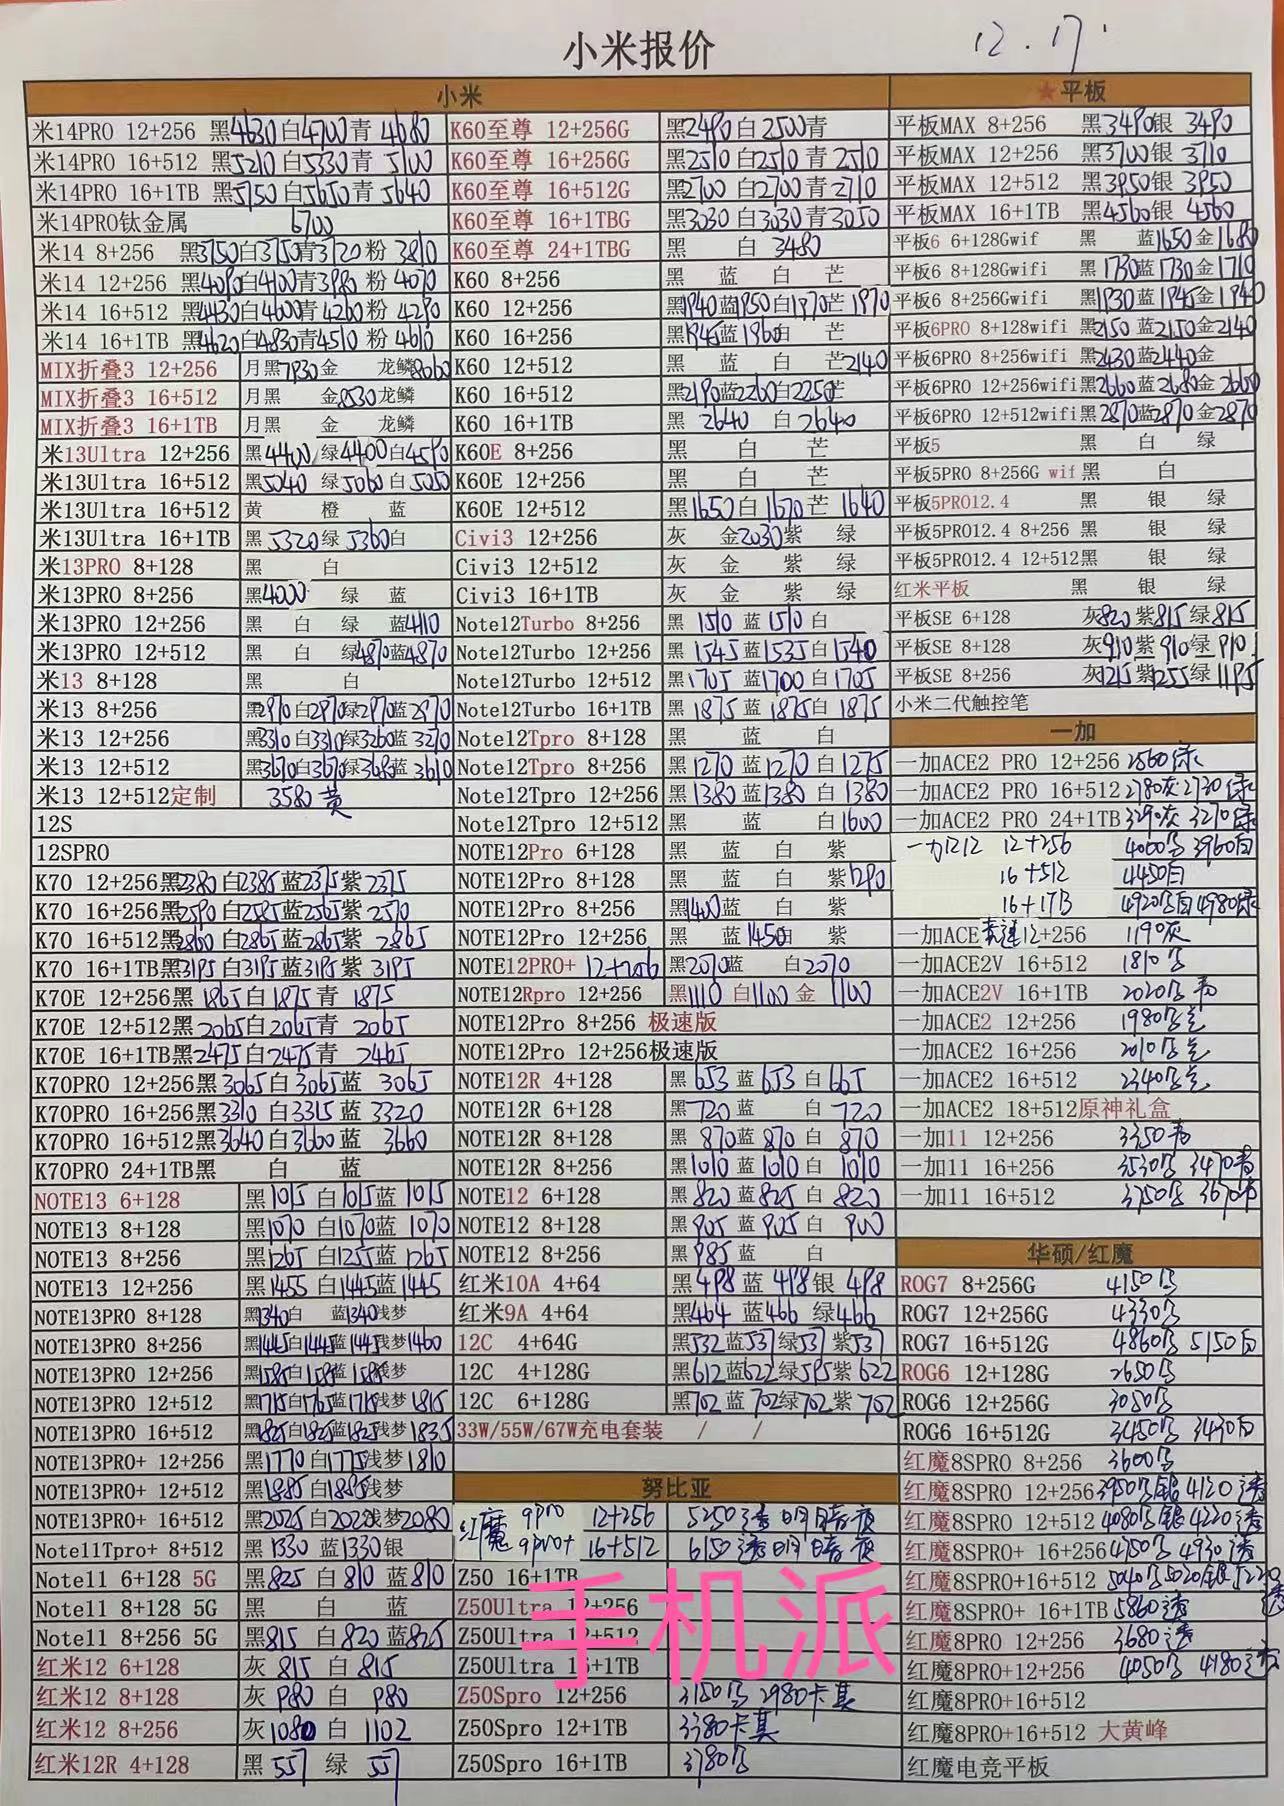 小米报价
12.17
小米
米14PRO 12+256 黑4630白4700青 4680
米14PRO 16+512 黑5210 白5330青 5100
米14PRO 16+1TB 黑5150 白5650青 5640
米14PRO钛金属 6700
米14 8+256 黑3750白3750青3720 粉 3810
米14 12+256 黑4090白4100青3980 粉 4070
米14 16+512 黑4430白4600青4260 粉 4290
米14 16+1TB 黑4620白4830青4510 粉 4610
MIX折叠3 12+256 月黑7930金 龙鳞8060
MIX折叠3 16+512 月黑 金8530龙鳞
MIX折叠3 16+1TB 月黑 金 龙鳞
米13Ultra 12+256 黑4400 绿4400白4590
米13Ultra 16+512 黑5040 绿5060白5050
米13Ultra 16+512 黄 橙 蓝
米13Ultra 16+1TB 黑 5320绿 5360白
米13PRO 8+128 黑 白
米13PRO 8+256 黑4000 绿 蓝
米13PRO 12+256 黑 白 绿 蓝4110
米13PRO 12+512 黑 白 绿4870蓝4870
米13 8+128 黑 白
米13 8+256 黑2970白2970绿2970蓝2970
米13 12+256 黑3310白3310绿3260蓝3270
米13 12+512 黑3670白3670绿3680蓝3610
米13 12+512定制 3580黄
12S
12SPRO
K70 12+256黑2380白2385蓝2375紫2375
K70 16+256黑2590白2585蓝2565紫2570
K70 16+512黑2860白2865蓝2865紫2865
K70 16+1TB黑3195白3195蓝3195紫 3195
K70E 12+256黑 1865白1875青 1875
K70E 12+512黑2065白2065青 2065
K70E 16+1TB黑2475白2475青 2465
K70PRO 12+256黑3065白3065蓝 3065
K70PRO 16+256黑3310白3315蓝 3320
K70PRO 16+512黑3640白3660蓝 3660
K70PRO 24+1TB黑 白 蓝
NOTE13 6+128 黑1015白1015蓝 1015
NOTE13 8+128 黑1070 白1070蓝 1070
NOTE13 8+256 黑1265白1255蓝1265
NOTE13 12+256 黑1455 白1445蓝1445
NOTE13PRO 8+128 黑1340白 蓝1340浅梦
NOTE13PRO 8+256 黑1445白1445蓝1445浅梦1460
NOTE13PRO 12+256 黑1585白1585蓝1585浅梦
NOTE13PRO 12+512 黑1715白1765蓝1715浅梦1815
NOTE13PRO 16+512 黑1825白1825蓝1825浅梦1835
NOTE13PRO+ 12+256 黑1770白1775浅梦1810
NOTE13PRO+ 12+512 黑1885白1885浅梦
NOTE13PRO+ 16+512 黑2025白2020浅梦2080
Note11Tpro+ 8+512 黑1330 蓝1330银
Note11 6+128 5G 黑825 白810 蓝810
Note11 8+128 5G 黑 白 蓝
Note11 8+256 5G 黑815 白820 蓝825
红米12 6+128 灰 815 白 815
红米12 8+128 灰 980 白 980
红米12 8+256 灰1080 白 1102
红米12R 4+128 黑 557 绿 557
K60至尊 12+256G 黑2490白2500青
K60至尊 16+256G 黑2510白2510 青2510
K60至尊 16+512G 黑2700 白2700青2710
K60至尊 16+1TBG 黑3030白3030青3050
K60至尊 24+1TBG 黑 白 3480
K60 8+256 黑 蓝 白 芒
K60 12+256 黑1940蓝1950白1970芒1970
K60 16+256 黑1945蓝1960白 芒
K60 12+512 黑 蓝 白 芒2140
K60 16+512 黑2190蓝2260白2250芒
K60 16+1TB 黑 2640 白 2640
K60E 8+256 黑 白 芒
K60E 12+256 黑 白 芒
K60E 12+512 黑1650白1670芒1640
Civi3 12+256 灰 金2030紫 绿
Civi3 12+512 灰 金 紫 绿
Civi3 16+1TB 灰 金 紫 绿
Note12Turbo 8+256 黑 1510 蓝1510 白
Note12Turbo 12+256 黑1545蓝1535白1540
Note12Turbo 12+512 黑1705蓝1700白1705
Note12Turbo 16+1TB 黑 1875蓝 1875白 1875
Note12Tpro 8+128 黑 蓝 白
Note12Tpro 8+256 黑1270蓝1270 白1275
Note12Tpro 12+256 黑1380蓝1380 白1380
Note12Tpro 12+512 黑 蓝 白1600
NOTE12Pro 6+128 黑 蓝 白 紫
NOTE12Pro 8+128 黑 蓝 白 紫1290
NOTE12Pro 8+256 黑1400蓝 白 紫
NOTE12Pro 12+256 黑 蓝1450白 紫
NOTE12PRO+ 12+256 黑2070蓝 白2070
NOTE12Rpro 12+256 黑1110 白1100 金 1100
NOTE12Pro 8+256 极速版
NOTE12Pro 12+256极速版
NOTE12R 4+128 黑 653 蓝 653 白 665
NOTE12R 6+128 黑720蓝 白 720
NOTE12R 8+128 黑 870蓝 870 白 870
NOTE12R 8+256 黑1010蓝1010 白 1010
NOTE12 6+128 黑820蓝825 白 820
NOTE12 8+128 黑905 蓝 905白 900
NOTE12 8+256 黑985蓝 白
红米10A 4+64 黑498蓝 498银 498
红米9A 4+64 黑464 蓝466 绿466
12C 4+64G 黑532蓝537绿537紫537
12C 4+128G 黑612蓝622绿595紫622
12C 6+128G 黑702 蓝702绿702紫 702
33W/55W/67W充电套装 / /
努比亚
红魔 9pro 12+256 5250透 明月暗夜
9pro+ 16+512 6150透明月暗夜
Z50 16+1TB
Z50Ultra 12+256
Z50Ultra 12+512
Z50Ultra 16+1TB
Z50Spro 12+256 3150 2980卡其
Z50Spro 12+1TB 3380卡其
Z50Spro 16+1TB 3780
★平板
平板MAX 8+256 黑3490银 3490
平板MAX 12+256 黑3700银 3710
平板MAX 12+512 黑3950银 3950
平板MAX 16+1TB 黑4560银 4560
平板6 6+128Gwif 黑 蓝1650金1680
平板6 8+128Gwifi 黑 1730蓝1730金1710
平板6 8+256Gwifi 黑1930蓝1945金1940
平板6PRO 8+128wifi 黑2150 蓝2150金2140
平板6PRO 8+256wifi 黑2430蓝2440金
平板6PRO 12+256wifi黑2660蓝2680金2660
平板6PRO 12+512wifi黑2870蓝2870金2870
平板5 黑 白 绿
平板5PRO 8+256G wif黑 白
平板5PRO12.4 黑 银 绿
平板5PRO12.4 8+256 黑 银 绿
平板5PRO12.4 12+512黑 银 绿
红米平板 黑 银 绿
平板SE 6+128 灰820紫815绿815
平板SE 8+128 灰910紫910绿910
平板SE 8+256 灰1215紫1255绿1195
小米二代触控笔
一加
一加ACE2 PRO 12+256 2560绿
一加ACE2 PRO 16+512 2780灰2730绿
一加ACE2 PRO 24+1TB 3290灰 3270绿
一加12 12+256 4000 3960白
16+512 4450白
16+1TB 4920 白4980绿
一加ACE竞速12+256 1190灰
一加ACE2V 16+512 1810
一加ACE2V 16+1TB 2020
一加ACE2 12+256 1980
一加ACE2 16+256 2010
一加ACE2 16+512 2340
一加ACE2 18+512原神礼盒
一加11 12+256 3350
一加11 16+256 3530 3470
一加11 16+512 3750 3670
华硕/红魔
ROG7 8+256G 4150
ROG7 12+256G 4330
ROG7 16+512G 4860 5150白
ROG6 12+128G 2650
ROG6 12+256G 3050
ROG6 16+512G 3450 3430白
红魔8SPRO 8+256 3600
红魔8SPRO 12+256 3950 银 4120 透
红魔8SPRO 12+512 4080 银4220透
红魔8SPRO+ 16+256 4750 4930 透
红魔8SPRO+16+512 5040 5020银5220透
红魔8SPRO+ 16+1TB 5860透
红魔8PRO 12+256 3680透
红魔8PRO+12+256 4050 4180透
红魔8PRO+16+512
红魔8PRO+16+512 大黄峰
红魔电竞平板
手机派